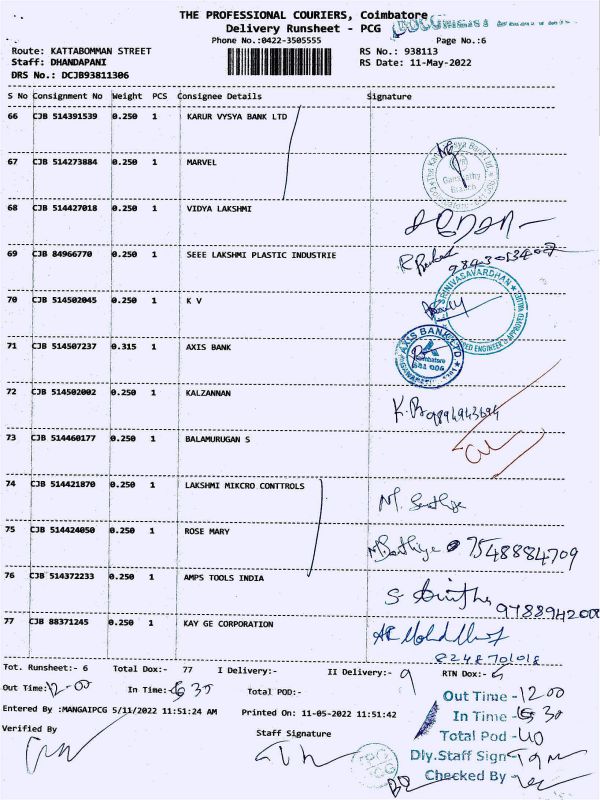 THE PROFESSIONAL COURIERS, Coimbatore
Delivery Runsheet - PCG
Phone No.:0422-3505555 Page No.:6
Route: KATTABOMMAN STREET RS No.: 938113
Staff: DHANDAPANI RS Date: 11-May-2022
DRS No.: DCJB93811306
S No Consignment No Weight PCS Consignee Details Signature
66 CJB 514391539 0.250 1 KARUR VYSYA BANK LTD
67 CJB 514273884 0.250 1 MARVEL
Ganapathy
Branch
68 CJB 514427018 0.250 1 VIDYA LAKSHMI
69 CJB 84966770 0.250 1 SEEE LAKSHMI PLASTIC INDUSTRIE
SRINIVASAVARDHAN
70 CJB 514502045 0.250 1 K V
71 CJB 514507237 0.315 1 AXIS BANK
AXIS BANK LTD
Coimbatore
641 006
72 CJB 514502002 0.250 1 KALZANNAN
73 CJB 514460177 0.250 1 BALAMURUGAN S
74 CJB 514421870 0.250 1 LAKSHMI MIKCRO CONTTROLS
75 CJB 514424050 0.250 1 ROSE MARY
7548884709
76 CJB 514372233 0.250 1 AMPS TOOLS INDIA
77 CJB 88371245 0.250 1 KAY GE CORPORATION
8248701018
Tot. Runsheet:- 6 Total Dox:- 77 I Delivery:- II Delivery:- 9 RTN Dox:-
Out Time:12-00 In Time: 6 30 Total POD:-
Out Time - 12 00
Entered By :MANGAIPCG 5/11/2022 11:51:24 AM Printed On: 11-05-2022 11:51:42
In Time - 6 30
Verified By Staff Signature
Total Pod - 40
Dly.Staff Sign -
Checked By -
PCG